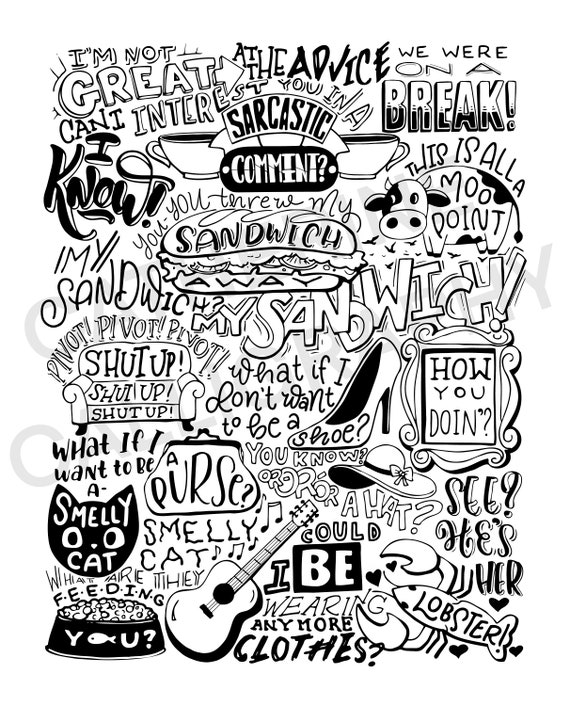 I'M NOT
GREAT
AT THE ADVICE
CAN I INTEREST YOU IN A
SARCASTIC
COMMENT?
WE WERE
ON A
BREAK!
I
KNOW!
THIS IS ALL A
MOO
POINT
YOU-YOU THREW MY
SANDWICH
AWAY
MY
SANDWICH?
MY SANDWICH!
PIVOT! PIVOT! PIVOT!
SHUT UP!
SHUT UP!
SHUT UP!
what if I
don't want
to be a
shoe?
HOW
YOU
DOIN'?
WHAT IF I
WANT TO BE
A
PURSE?
YOU KNOW?
OR OR OR
A HAT?
SEE?
HE'S
HER
LOBSTER!
SMELLY
CAT
SMELLY
CAT
WHAT ARE THEY
FEEDING
YOU?
COULD
I BE
WEARING
ANY MORE
CLOTHES?